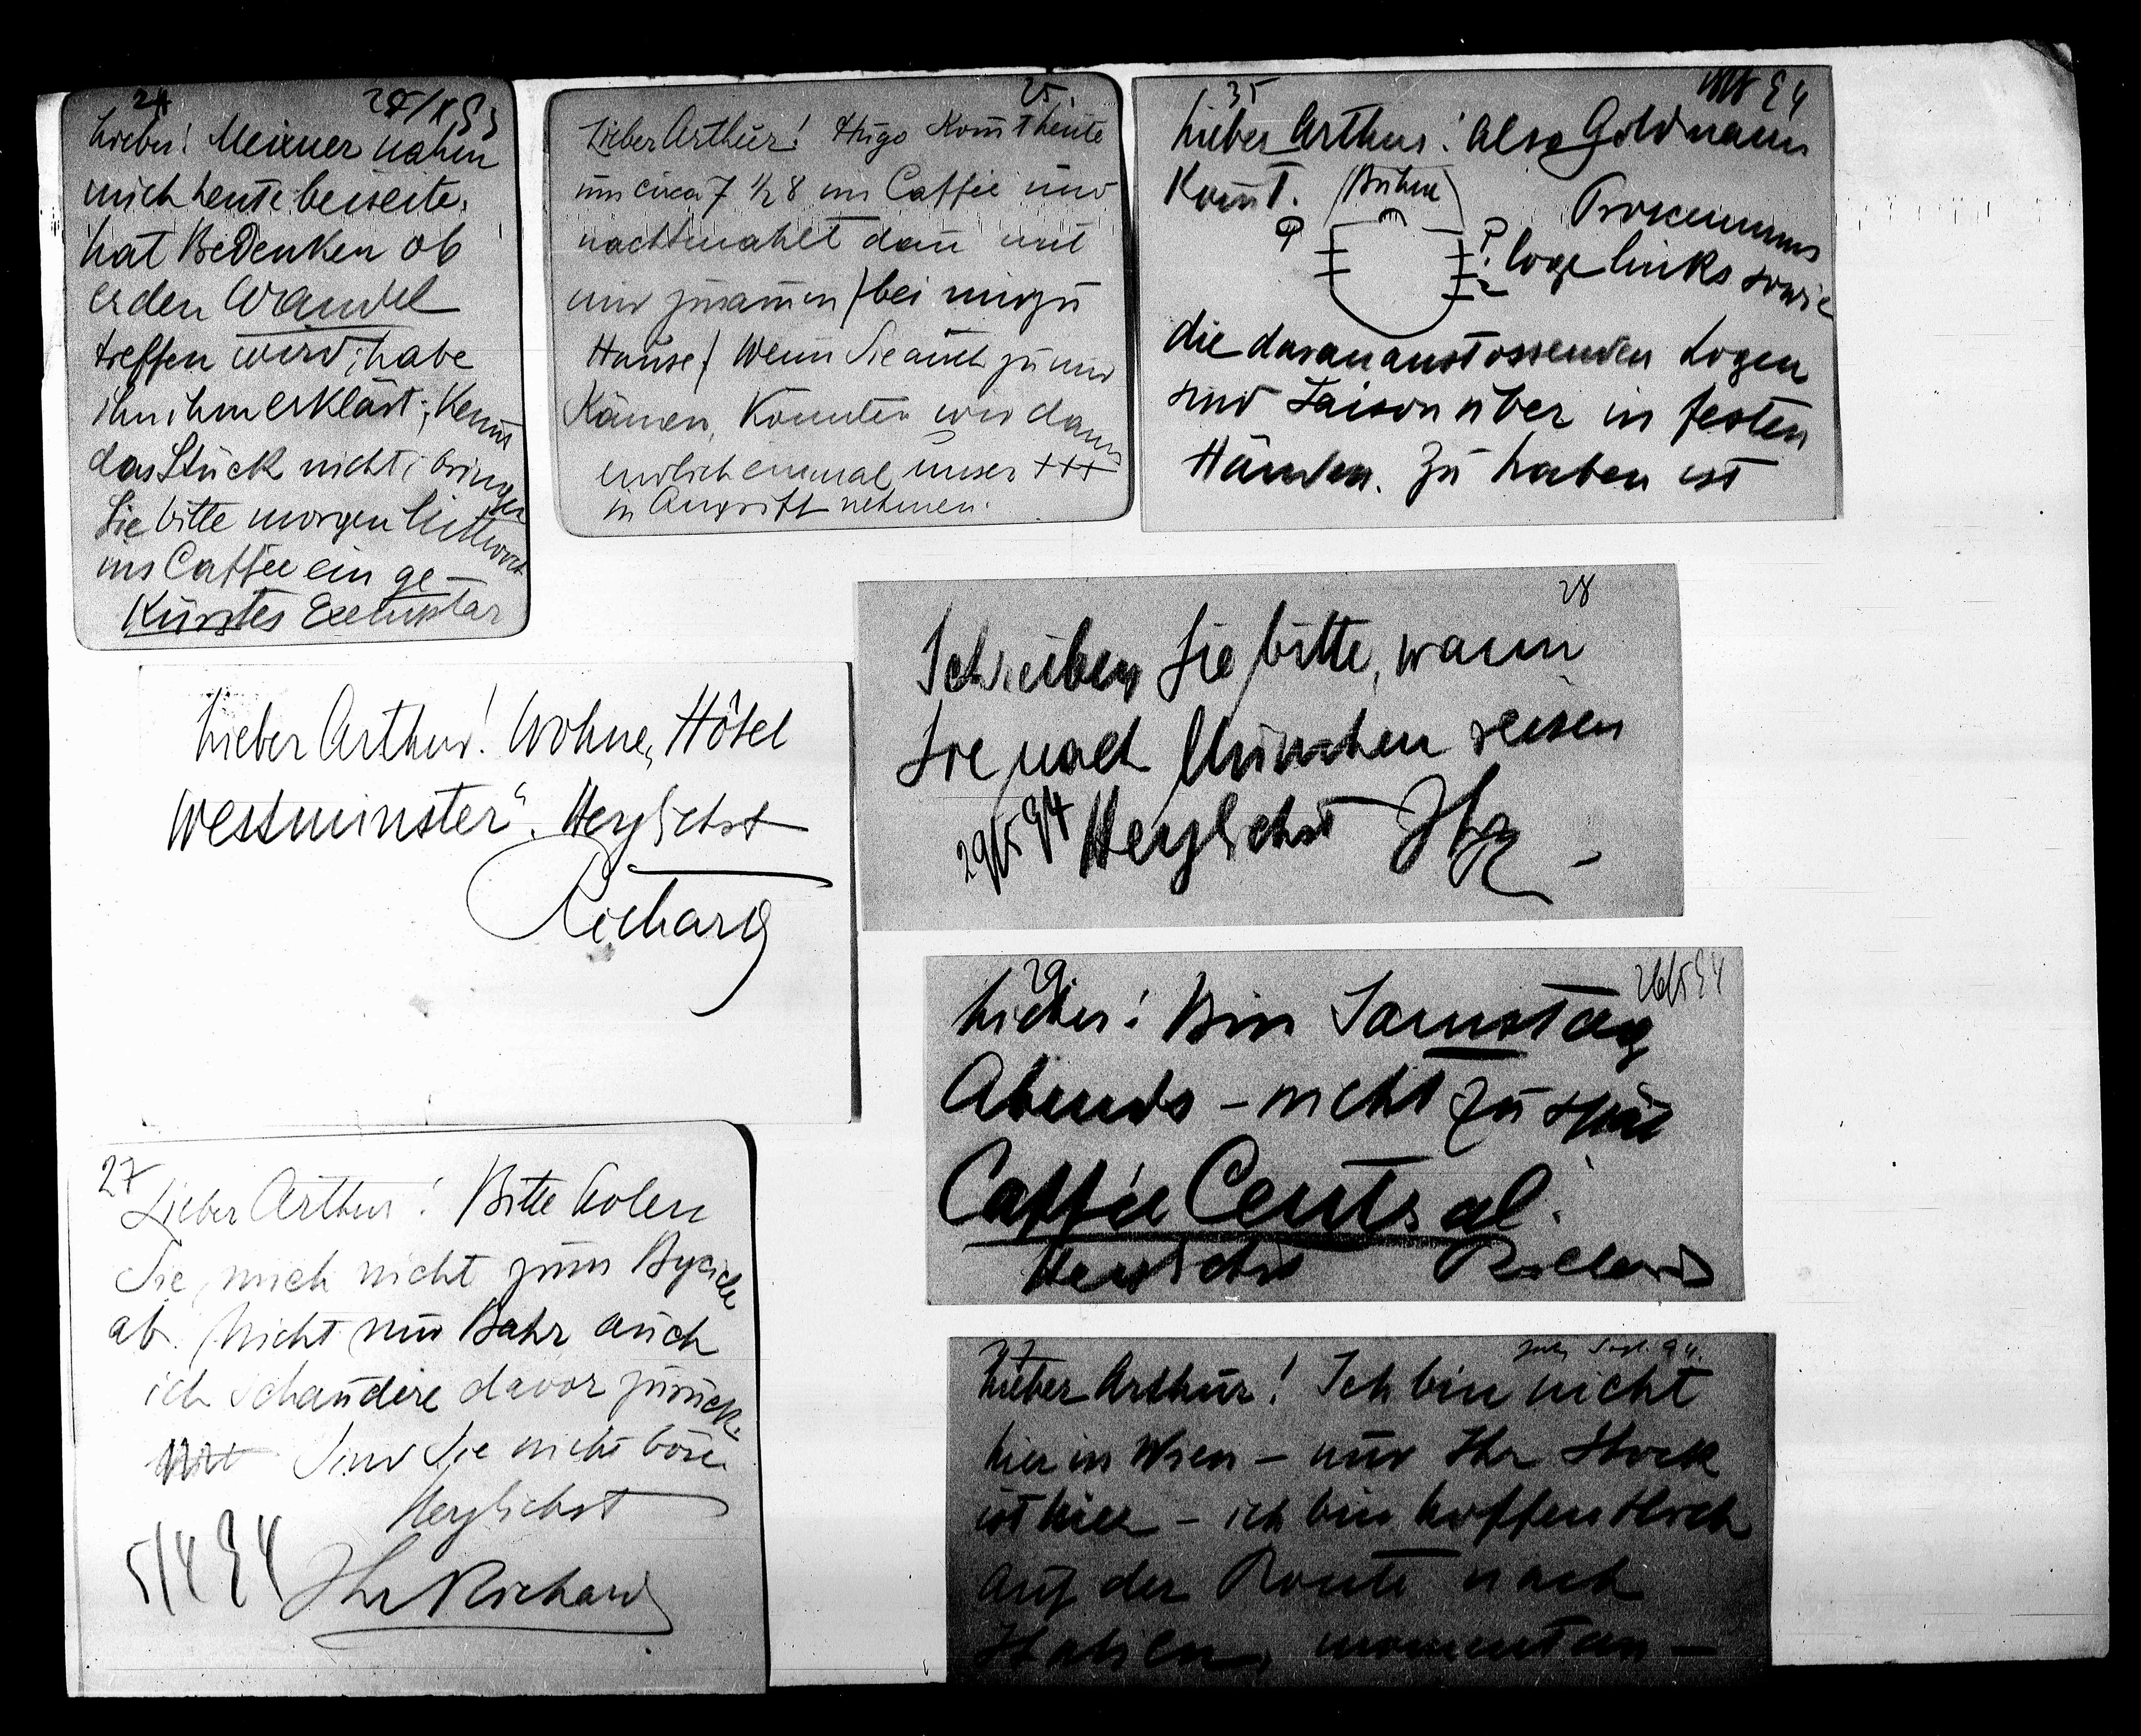 24
Lieber! Meixner nahm
mich heute beiseite.
hat Bedenken ob
er den Wandel
treffen wird; habe
ihn ihm erklärt; kennt
das Stück nicht; bringen
Sie bitte morgen Mittwoch
ins Caffée ein ge-
kürztes Exemplar
25.
Lieber Arthur! Hugo kom̄t heute
um circa 7 ½ 8 ins Caffée und
nachtmahlt dan̄ mit
mir zusam̄en (bei mir zu
Hause) Wenn Sie auch zu mir
kämen, könnten wir dann
endlich einmal unser +++
in Angriff nehmen.
35
94
Lieber Arthur! Also Goldmann
kom̄t.
(Bühne)
Prosceniums
loge links sowie
die darananstossenden Logen
sind Saison über in festen
Händen. Zu haben ist
Lieber Arthur! Wohne „Hôtel
Westminster“. Herzlichst
Richard
28
Schreiben Sie bitte, wann
Sie nach München reisen
29/5 94 Herzlichst Ihr
R
29
26/5 94
Lieber! Bin Samstag
Abends – nicht zu spät
Caffée Central.
Herzlichst Richard
27
Lieber Arthur! Bitte holen
Sie mich nicht zum Bycicle
ab. Nicht nur Bahr auch
ich schaudere davor zurück.
Sind Sie nicht böse
Herzlichst
5/4 94
Ihr Richard
Sept. 94.
Lieber Arthur! Ich bin nicht
hier in Wien – nur Ihr Stock
ist hier – ich bin hoffentlich
auf der Route nach
Italien, momentan –